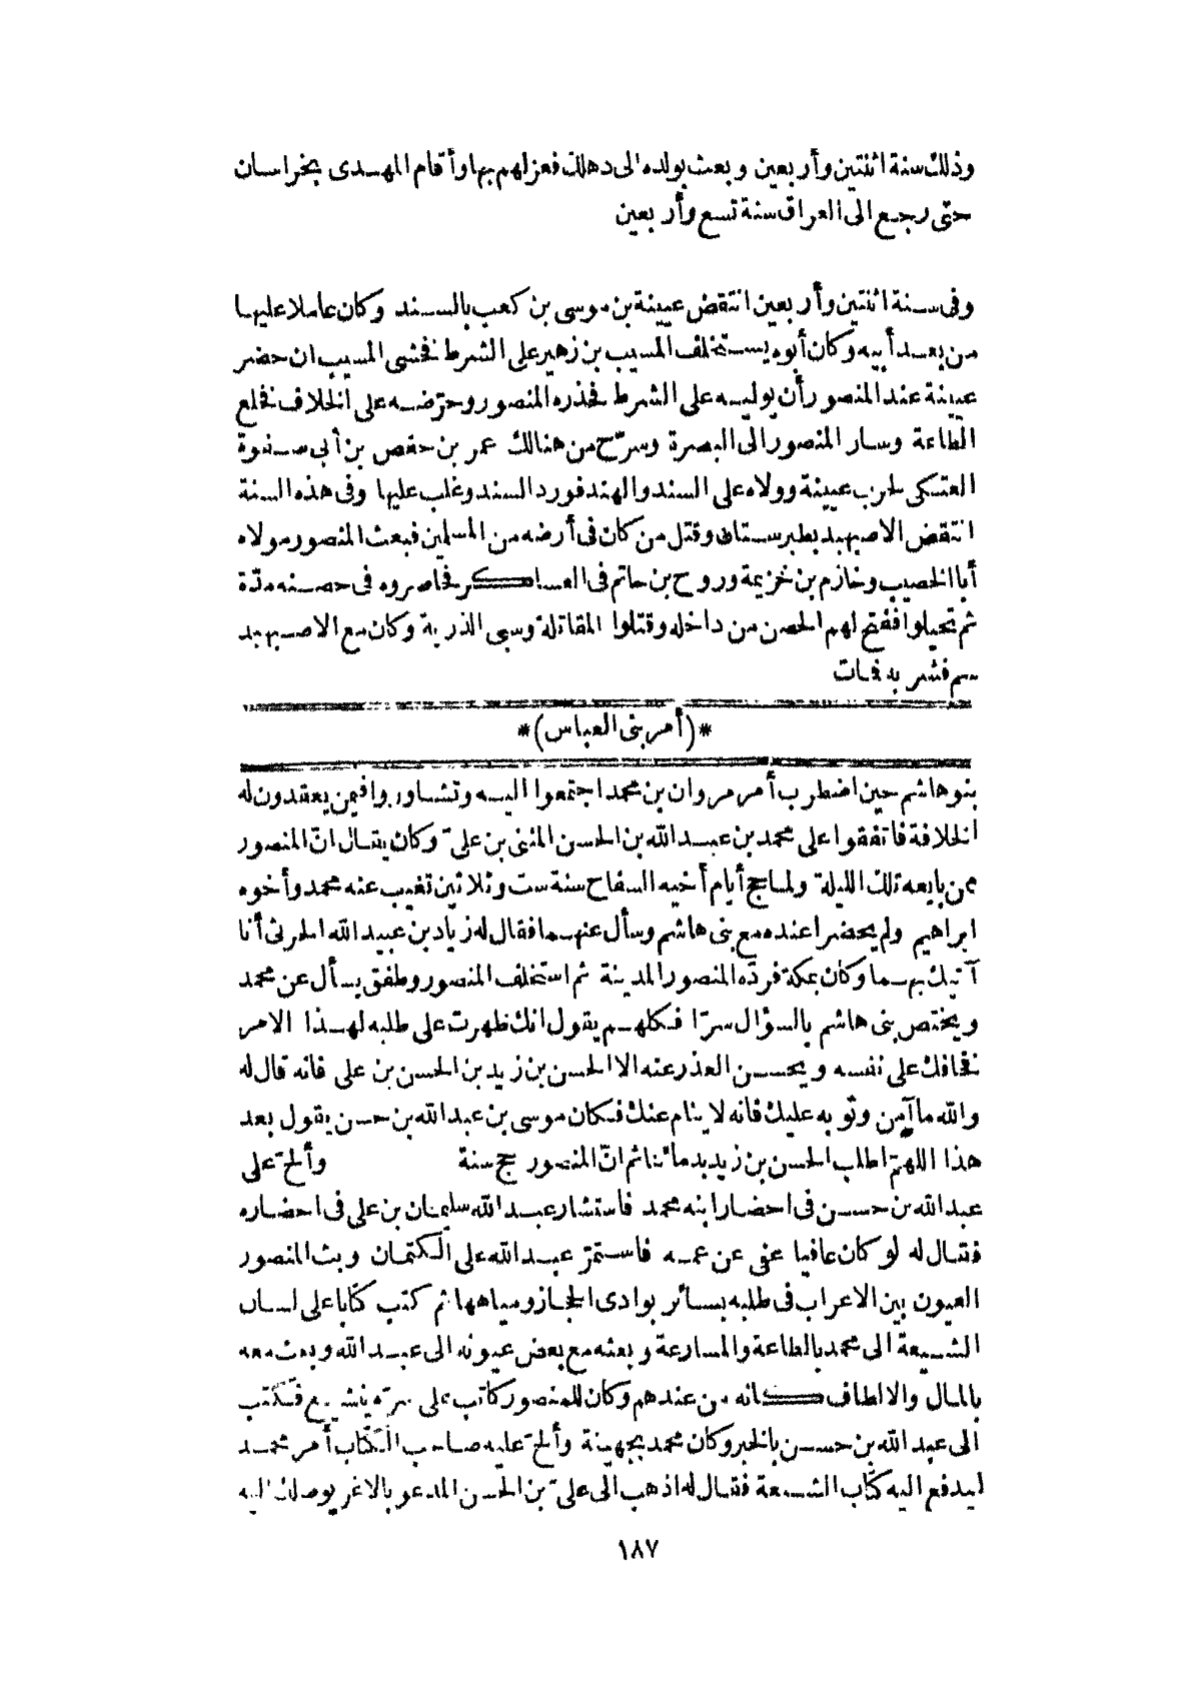 وذلك سنة اثنتين وأربعين وبعث بولده الى دهلك فعزلهم بها وأقام المهدى بخراسان
حتى رجع الى العراق سنة تسع وأربعين
وفى سنة اثنتين وأربعين انتقض عيينة بن موسى بن كعب بالسند وكان عاملا عليها
من بعد أبيه وكان أبوه يستخلف المسيب بن زهير على الشرط فخشى المسيب ان حضر
عيينة عند المنصور أن يوليه على الشرط فحذره المنصور وحرّضه على الخلاف فخلع
الطاعة وسار المنصور الى البصرة وسرّح من هنالك عمر بن حفص بن أبى صفوة
العتكى لحرب عيينة وولاه على السند والهند فورد السند وغلب عليها وفى هذه السنة
انتقض الاصبهبد بطبرستان وقتل من كان فى أرضه من المسلمين فبعث المنصور مولاه
أبا الخصيب وخازم بن خزيمة وروح بن حاتم فى العساكر فحاصروه فى حصنه مدّة
ثم تحيلوا ففتح لهم الحصن من داخله وقتلوا المقاتلة وسبى الذرية وكان مع الاصبهبد
سم فشربه فمات
*(أمر بنى العباس)*
بنو هاشم حين اضطرب أمر مروان بن محمد اجتمعوا اليه وتشاوروا فيمن يعقدون له
الخلافة فاتفقوا على محمد بن عبد الله بن الحسن المثنى بن علىّ وكان يقال انّ المنصور
ممن بايعه تلك الليلة ولما حج أيام أخيه السفاح سنة ست وثلاثين تغيب عنه محمد وأخوه
ابراهيم ولم يحضرا عنده مع بنى هاشم وسأل عنهما فقال له زياد بن عبيد الله الحرثى أنا
آتيك بهما وكان بمكة فردّه المنصور المدينة ثم استخلف المنصور وطفق يسأل عن محمد
ويختص بنى هاشم بالسؤال سرّا فكلهم يقول انك ظهرت على طلبه لهذا الامر
نخافك على نفسه ويحسن العذر عنه الا الحسن بن زيد بن الحسن بن على فانه قال له
والله ما آمن وثوبه عليك فانه لا ينام عنك فكان موسى بن عبد الله بن حسن يقول بعد
هذا اللهمّ اطلب الحسن بن زيد بدمائنا ثم انّ المنصور حج سنة وألحّ على
عبد الله بن حسن فى احضار ابنه محمد فاستشار عبد الله سليمان بن على فى احضاره
فقال له لو كان عافيا عفى عن عمه فاستمرّ عبد الله على الكتمان وبث المنصور
العيون بين الاعراب فى طلبه بسائر بوادى الحجاز ومياهها ثم كتب كتابا على لسان
الشيعة الى محمد بالطاعة والمسارعة وبعثه مع بعض عيونه الى عبد الله وبعث معه
بالمال والالطاف كانه من عندهم وكان للمنصور كاتب على سرّه يتشيع فكتب
الى عبد الله بن حسن بالخبر وكان محمد بجهينة وألحّ عليه صاحب الكتاب أمر محمد
ليدفع اليه كتاب الشيعة فقال له اذهب الى علىّ بن الحسن المدعو بالاغر يوصلك اليه
١٨٧